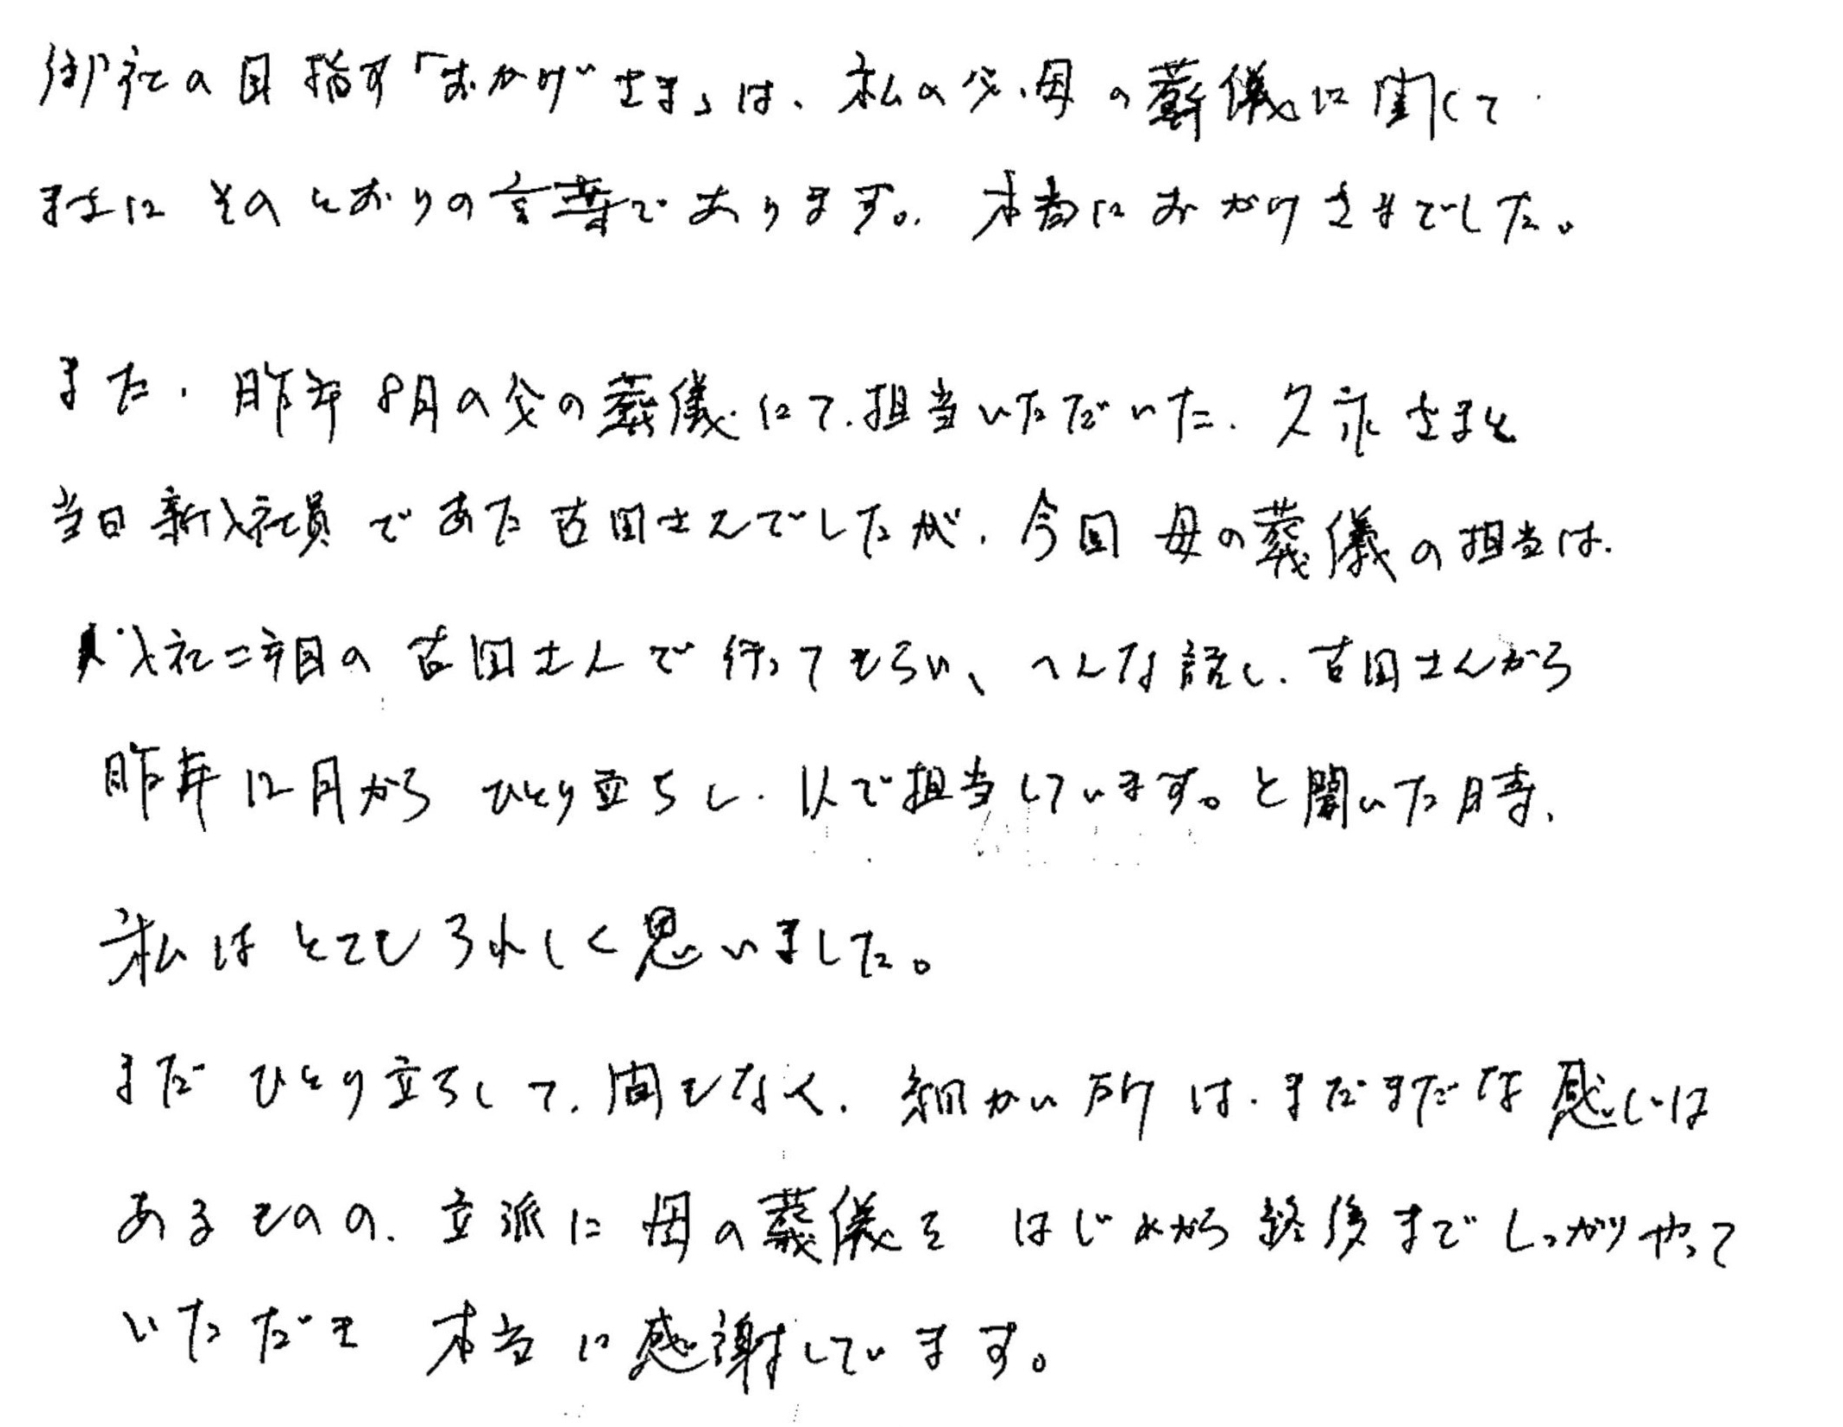 御社の目指す「おかげさま」は、私の父、母の葬儀に関して
まさに そのとおりの言葉であります。本当におかげさまでした。
また、昨年8月の父の葬儀にて、担当いただいた、久永さまと
当日新入社員であた古田さんでしたが、今回 母の葬儀の担当は、
入社二年目の 古田さんで行ってもらい、へんな話し、古田さんから
昨年12月から ひとり立ちし、1人で担当しています。と聞いた時、
私は とてもうれしく思いました。
まだ ひとり立ちして、間もなく、細かい所は、まだまだな感じは
あるものの、立派に 母の葬儀を はじめから 最後まで しっかりやって
いただき 本当に感謝しています。